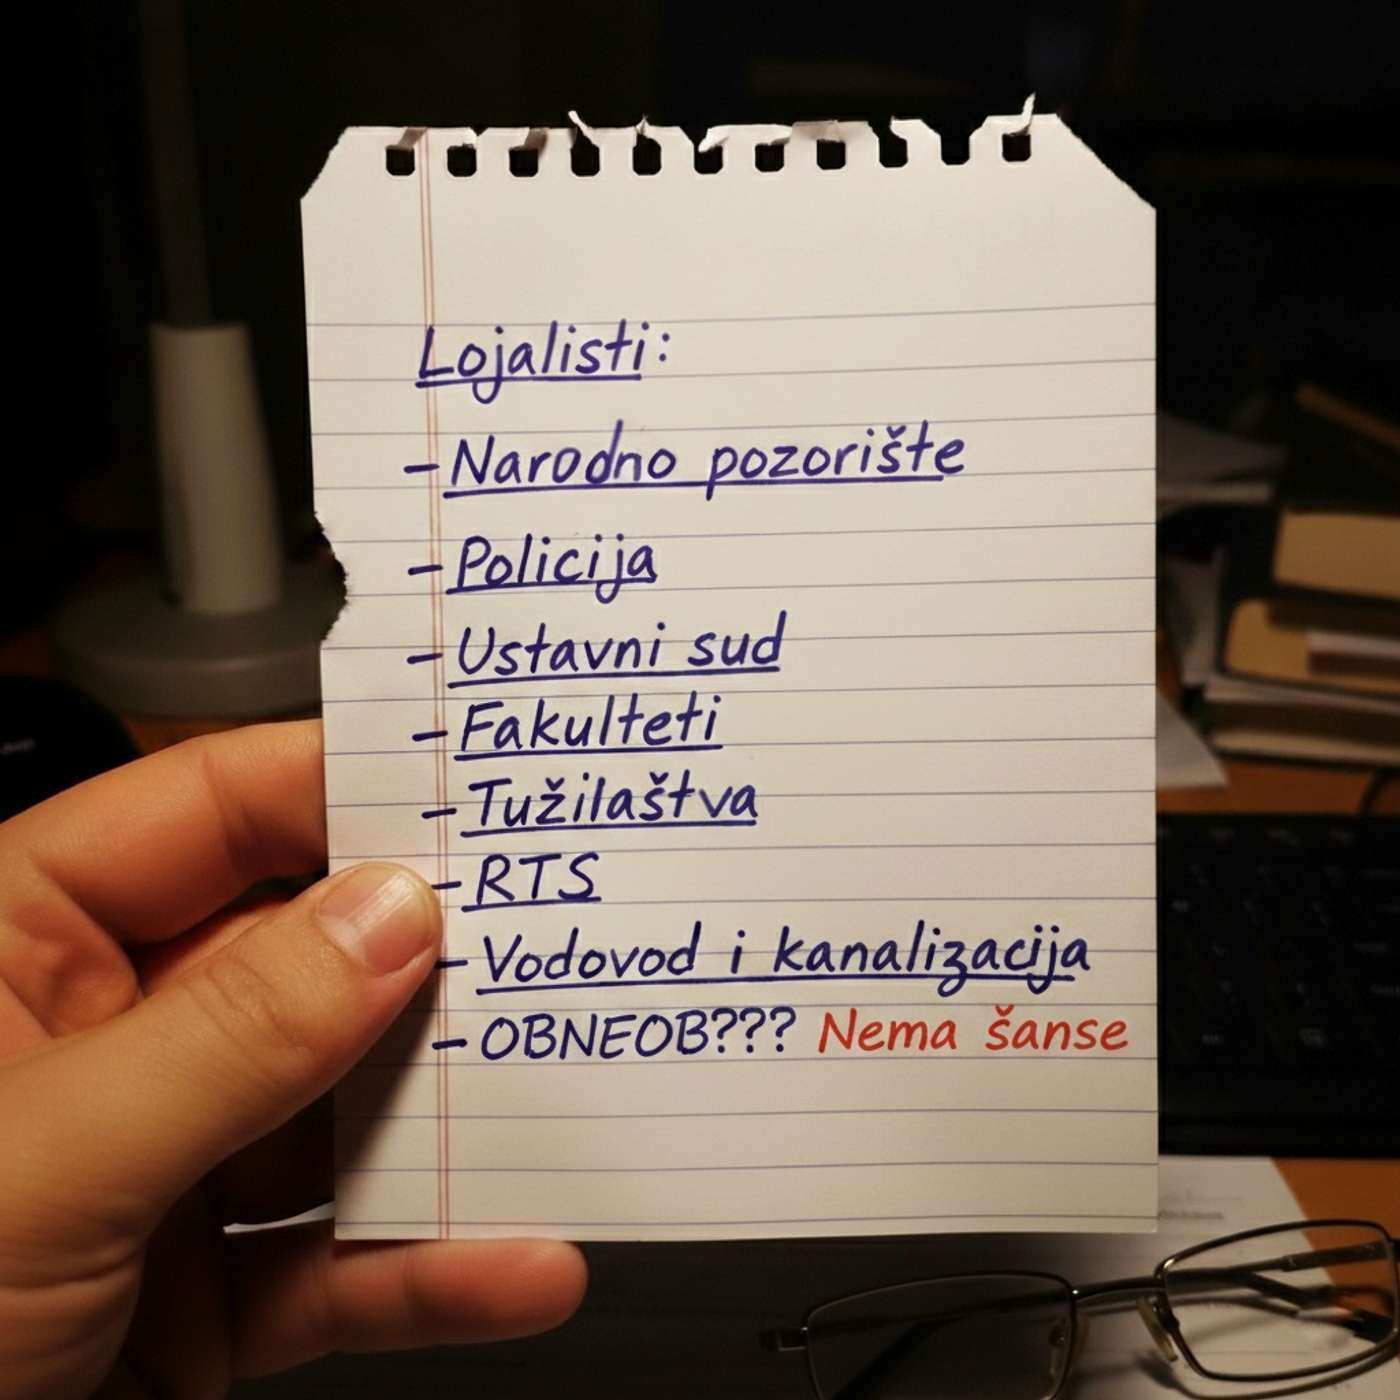 Lojalisti:
- Narodno pozorište
- Policija
- Ustavni sud
- Fakulteti
- Tužilaštva
- RTS
- Vodovod i kanalizacija
- OBNEOB??? Nema šanse